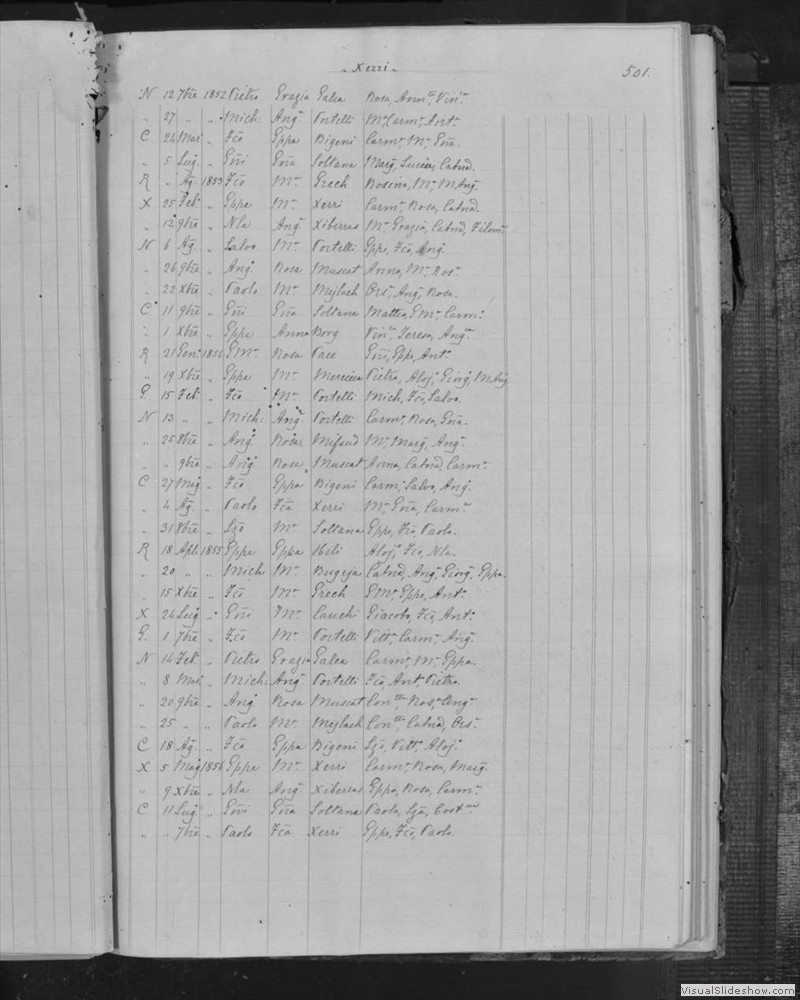 Xerri
501.
N 12 7bre 1852 Pietro Grazia Galea Rosa, Annta, Vinza
„ 27 „ „ Mich: Angª Portelli Mª, Carmª, Antª
C 24 Mar „ Fcõ Gppa Bigeni Carmª, Mª, Gña
„ 5 Lug „ Gñi Gña Soltana Margª, Lucia, Catnd.
R „ Ag 1853 Fcõ Mª Grech Rosina, Mª, MAng.
X 25 Feb „ Gppe Mª Xerri Carmª, Rosa, Catnd.
„ 12 9bre „ Nla Angª Xiberras Mª Grazia, Catnd, Filomª
N 6 Ag „ Salvo Mª Portelli Gppe, Fcõ, Ang.
„ 26 9bre „ Angº Rosa Muscat Anna, Mª, Rosª
„ 22 Xbre „ Paolo Mª Mejlach Orsª, Angª, Rosa.
C 11 9bre „ Gñi Gña Soltana Matteo, GMª, Carmª
„ 1 Xbre „ Gppe Anna Borg Vinza, Teresa, Angª
R 21 Gen. GMª Rosa Pace Gñi, Gppe, Antº
„ 19 Xbre „ Gppe Mª Mercieca Pietro, Alojº, Giorgº, MAng
G. 15 Feb. „ Fcõ Mª Portelli Mich, Fcõ, Salvo.
N 13 „ „ Mich: Angª Portelli Carmª, Rosa, Gña.
„ 25 8bre „ Angº Rosa Mifsud Mª, Margª, Angª
„ „ 9bre „ Angº Rosa Muscat Anna, Catnd, Carmª
C 27 Mag „ Fcõ Gppa Bigeni Carmª, Salvo, Ang.
„ 4 Ag. „ Paolo Fcã Xerri Mª, Gña, Carmª
„ 31 Xbre „ Lzõ Mª Soltana Gppe, Fcõ, Paolo.
R 18 Apl. 1855 Gppe Gppa Alojº, Fcõ, Nla.
„ 20 „ „ Mich Mª Bugeja Catnd, Angª, Giorgº, Gppa.
„ 15 Xbre „ Fcõ Mª Grech GMª, Gppe, Antº
X 24 Lug „ Gñi Mª Cauchi Giacobo, Fcõ, Antº
G. 1 7bre „ Fcõ Mª Portelli Vittª, Carmª, Angª
N 14 Feb. „ Pietro Grazia Galea Carmª, Mª, Gppa.
„ 8 Mar. „ Mich: Angª Portelli Fcõ, Antº Pietro.
„ 20 9bre „ Angº Rosa Muscat Contta, Rosª, Angª
„ 25 „ „ Paolo Mª Mejlach Contta, Catnd, Orsª
C 18 Ag. „ Fcõ Gppa Bigeni Lzõ, Vittª, Alojº
X 5 Mag 1856 Gppe Mª Xerri Carmª, Rosa, Margª
„ 9 Xbre „ Nla Angª Xiberras Gppa, Rosa, Carmª
C 11 Lug. „ Gñi Gña Soltana Paolo, Lzã, Costna
„ „ 7bre „ Paolo Fcã Xerri Gppe, Fcõ, Paolo.
VisualSlideshow.com